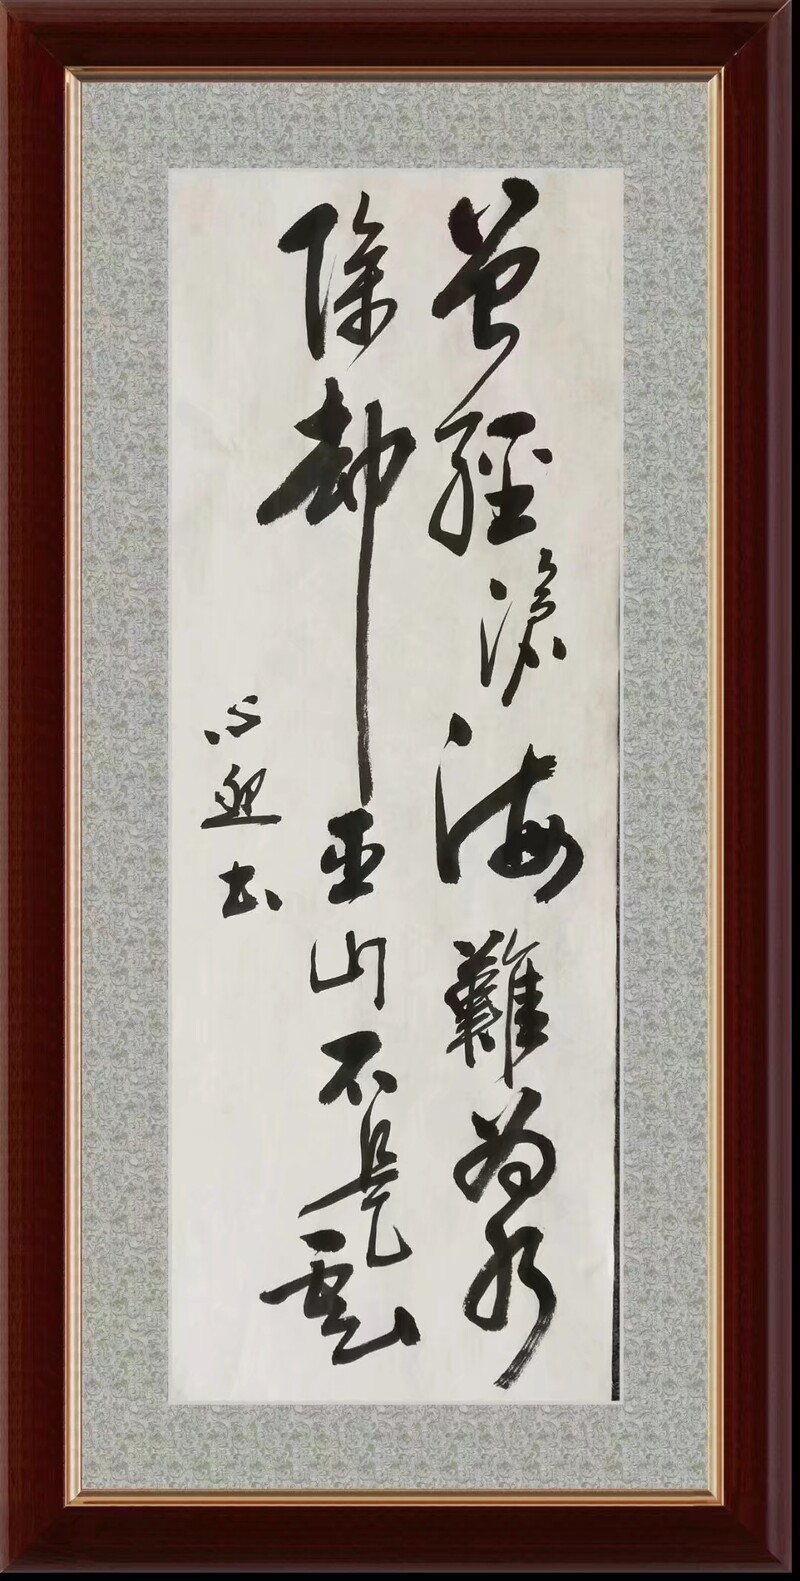 曾經滄海難為水
除却巫山不是雲
心迎书